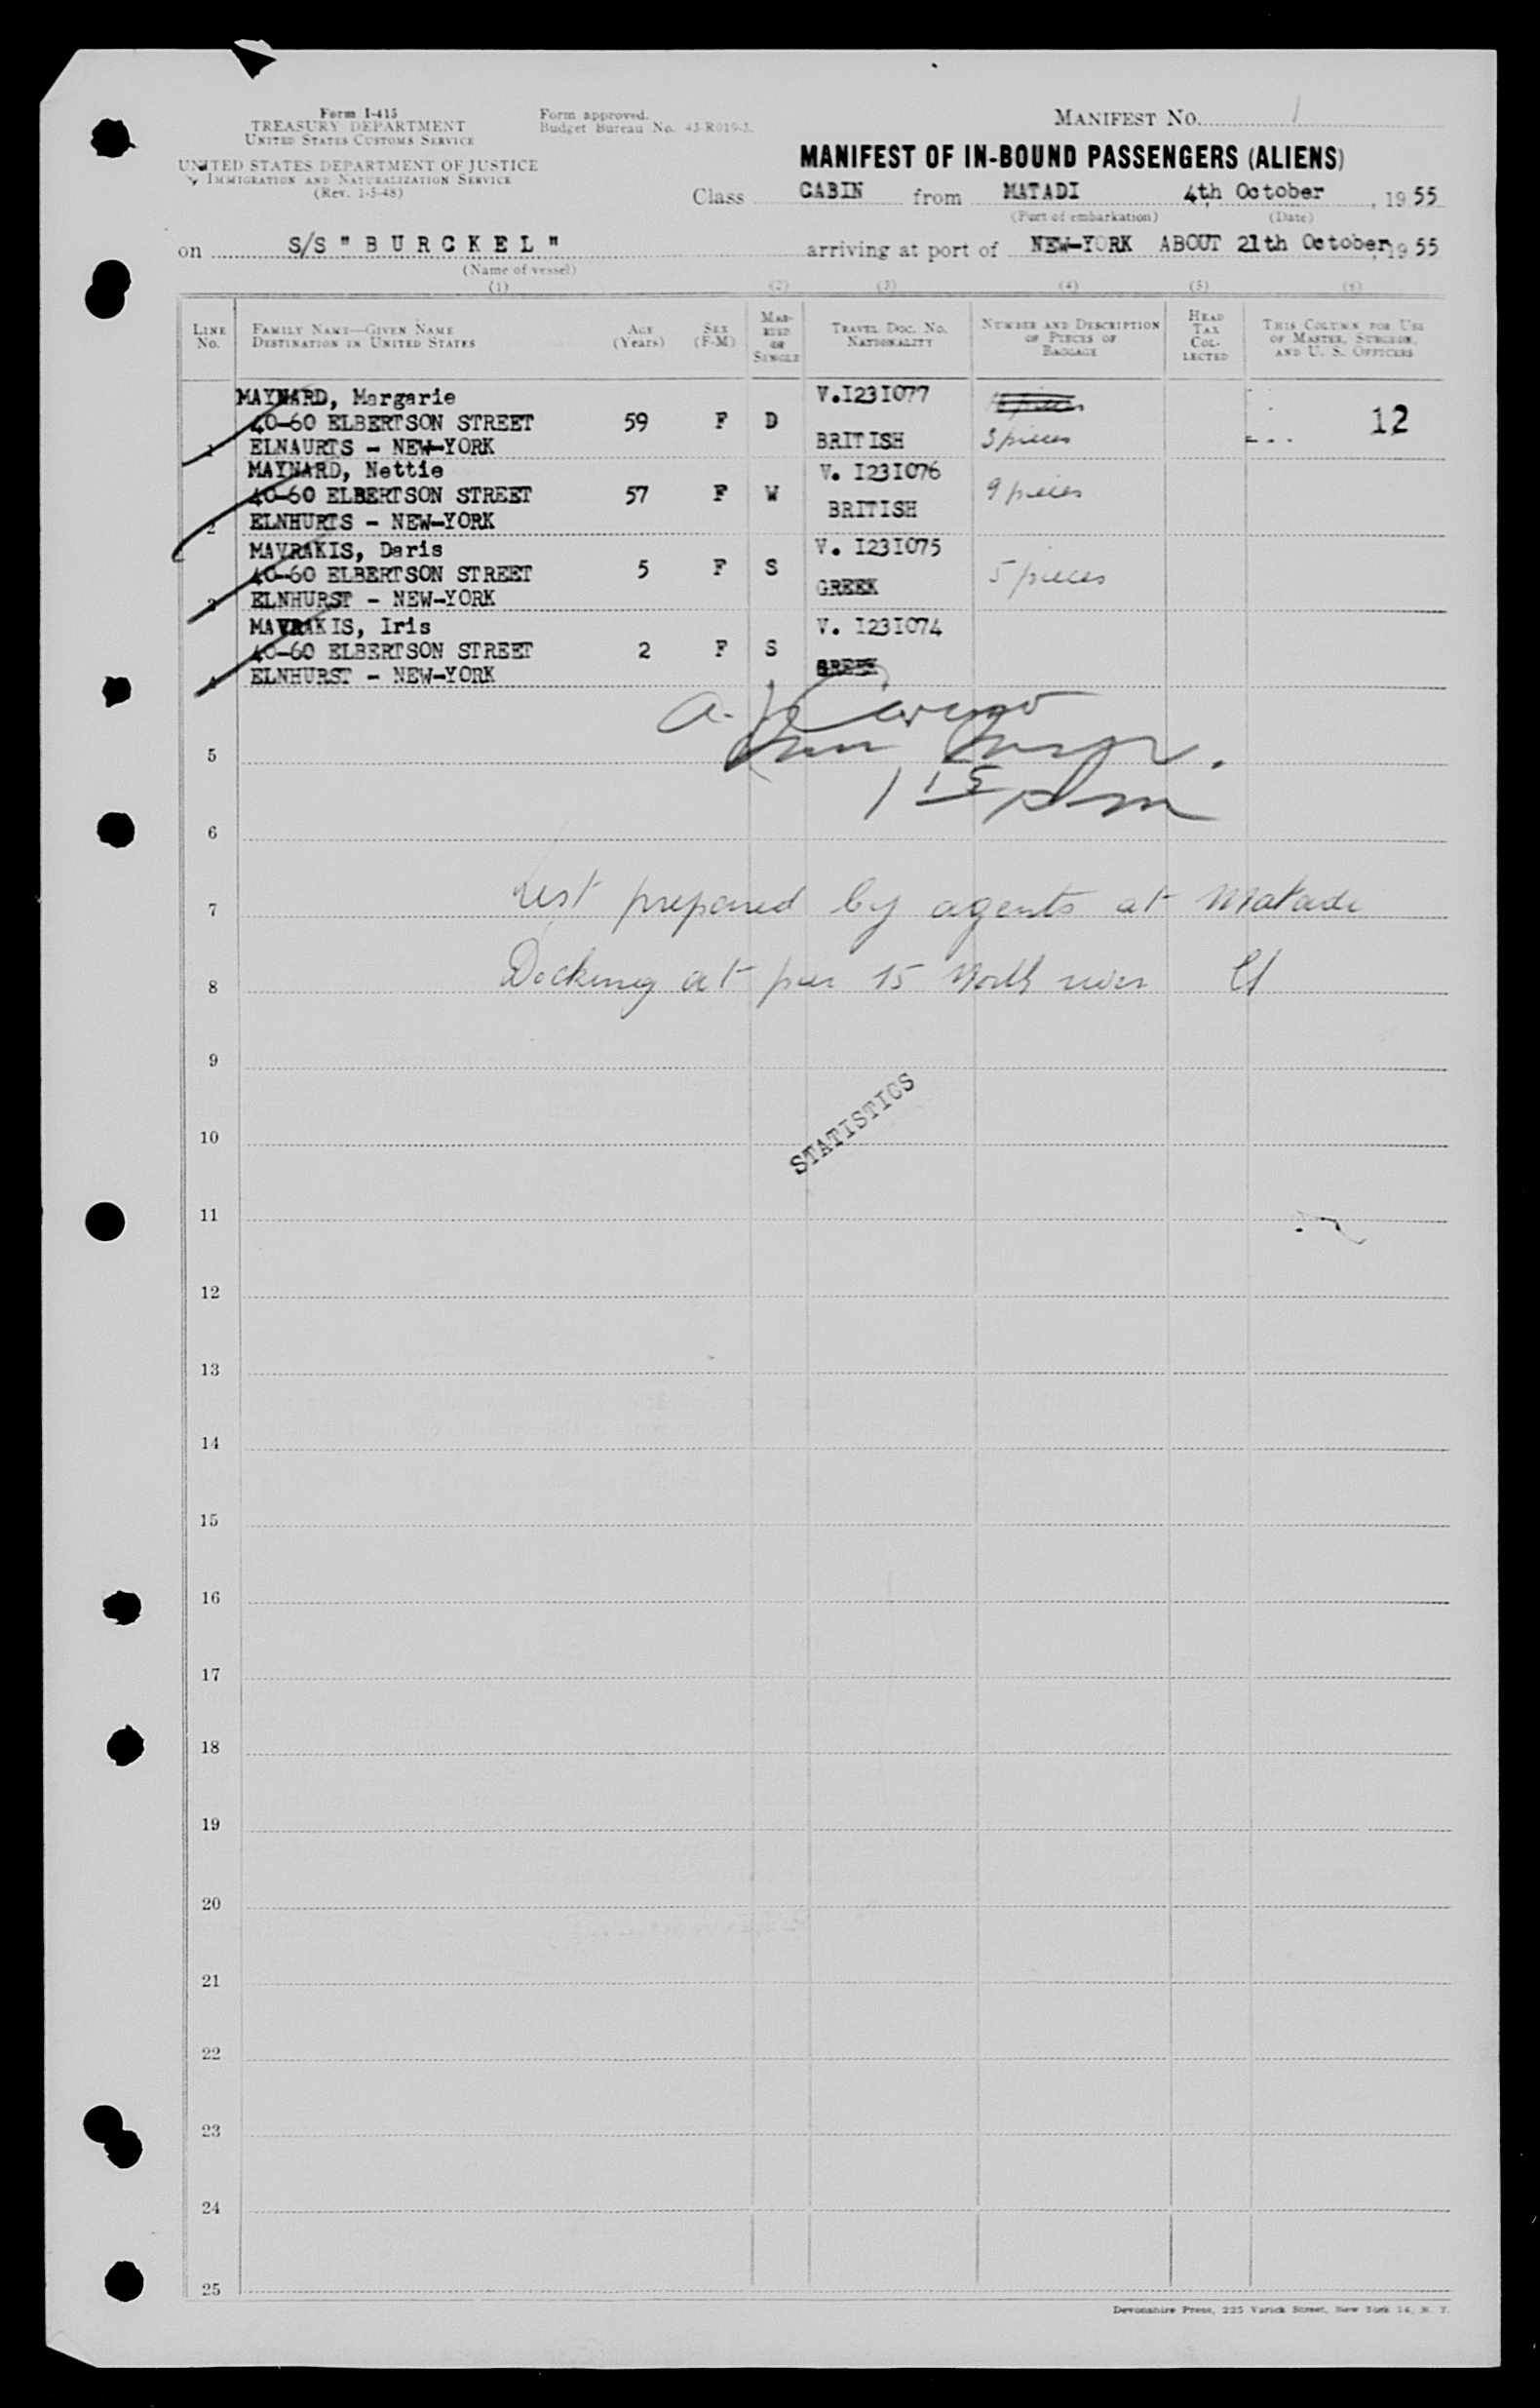 Form I-415
TREASURY DEPARTMENT
UNITED STATES CUSTOMS SERVICE
UNITED STATES DEPARTMENT OF JUSTICE
IMMIGRATION AND NATURALIZATION SERVICE
(Rev. 1-5-48)
Form approved.
Budget Bureau No. 43-R019-3.
MANIFEST NO. 1
MANIFEST OF IN-BOUND PASSENGERS (ALIENS)
Class CABIN from MATADI 4th October, 1955
(Port of embarkation) (Date)
on S/S "BURCKEL" arriving at port of NEW-YORK ABOUT 21th October, 1955
(Name of vessel)
(1) (2) (3) (4) (5) (6)
LINE No. FAMILY NAME—GIVEN NAME DESTINATION IN UNITED STATES AGE (Years) SEX (F-M) MARRIED OR SINGLE TRAVEL DOC. NO. NATIONALITY NUMBER AND DESCRIPTION OF PIECES OF BAGGAGE HEAD TAX COLLECTED THIS COLUMN FOR USE OF MASTER, SURGEON, AND U. S. OFFICERS
MAYNARD, Margarie V.I23I077
40-60 ELBERTSON STREET 59 F D 12
1 ELNAURTS - NEW-YORK BRITISH 3 pieces
MAYNARD, Nettie V. I23I076
40-60 ELBERTSON STREET 57 F W 9 pieces
2 ELNHURTS - NEW-YORK BRITISH
MAVRAKIS, Daris V. I23I075
40-60 ELBERTSON STREET 5 F S 5 pieces
3 ELNHURST - NEW-YORK GREEK
MAVRAKIS, Iris V. I23I074
40-60 ELBERTSON STREET 2 F S
4 ELNHURST - NEW-YORK GREEK
5
1 15 pm
6
7 List prepared by agents at Matadi
8 Docking at pier 15 North river
9
STATISTICS
10
11
12
13
14
15
16
17
18
19
20
21
22
23
24
25
Devonshire Press, 225 Varick Street, New York 14, N. Y.